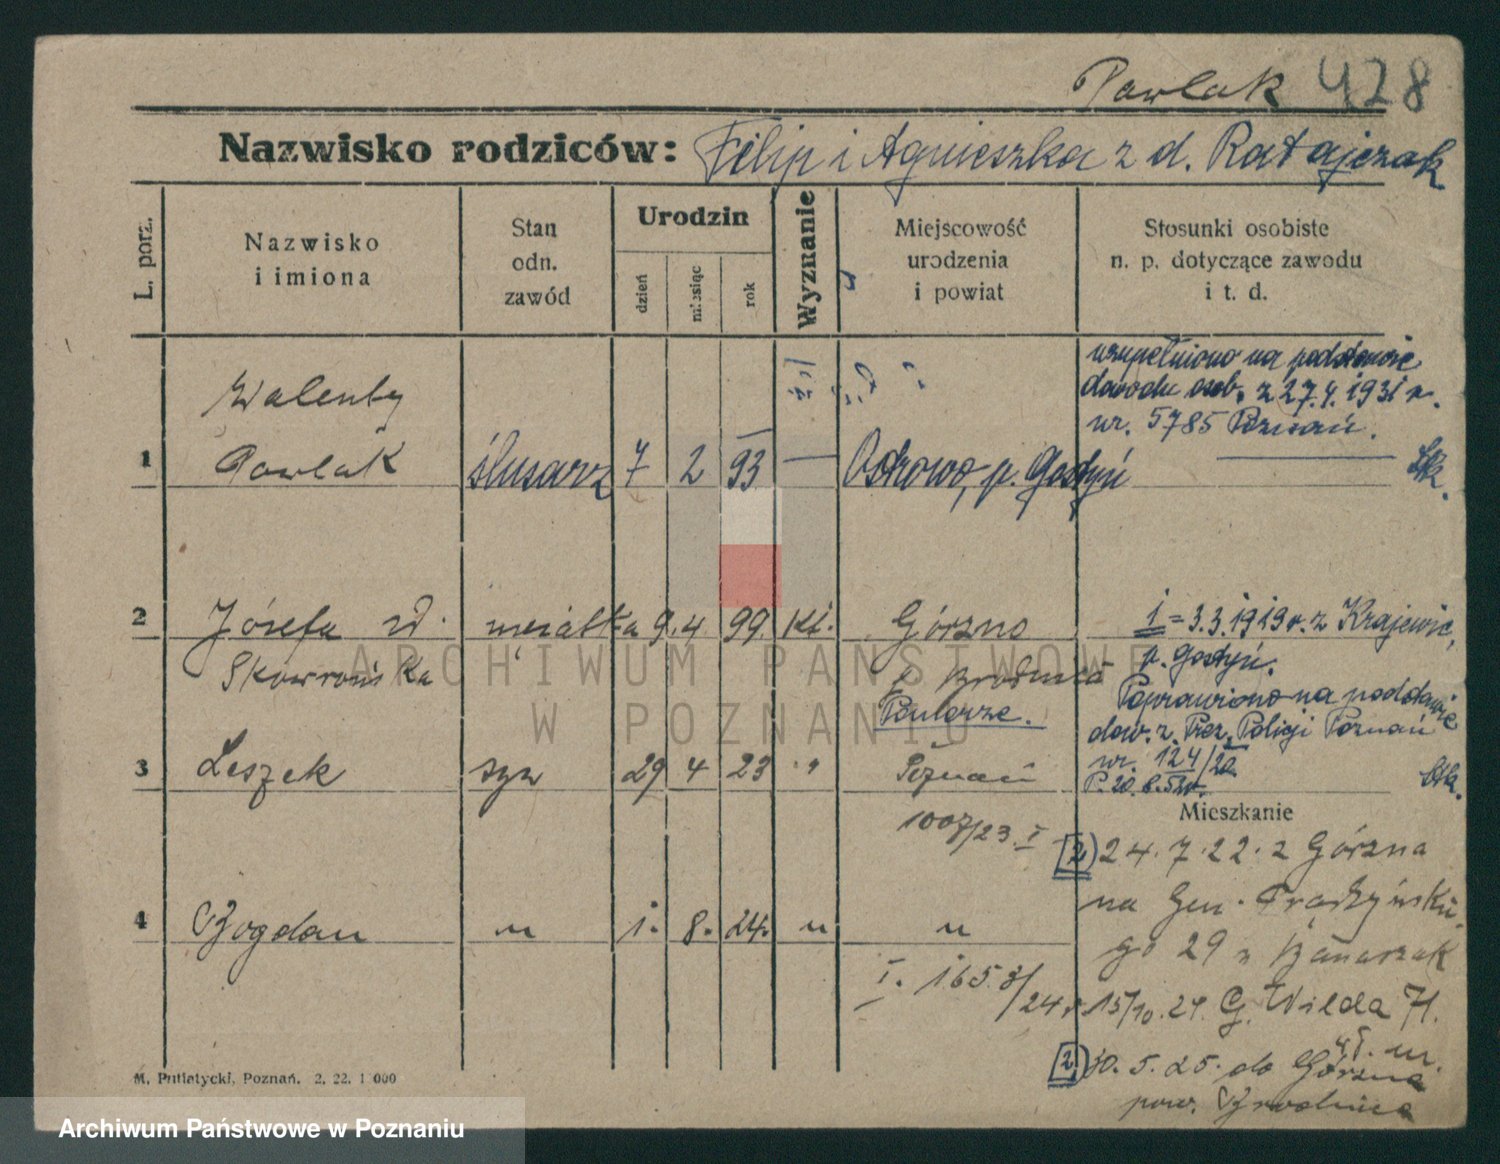 Pawlak 428
Nazwisko rodziców: Filip i Agnieszka z d. Ratajczak
L. porz.
Nazwisko
i imiona
Stan
odn.
zawód
Urodzin
dzień
miesiąc
rok
Wyznanie
Miejscowość
urodzenia
i powiat
Stosunki osobiste
n. p. dotyczące zawodu
i t. d.
uzupełniono na podstawie
dowodu osob. z 27.4.1931 r.
nr. 5785 Poznań.
Walenty
1 Pawlak ślusarz 7 2 93 — Ostrowo, p. Gostyń
2 Józefa mężatka 9. 4 99. kt. Górzno
Skowrońska p Brodnica
Pomorze.
1 = 3.3.1919 r. z Krajewic,
p. Gostyń.
Poprawiono na podstawie
dow. z Prez. Policji Poznań
nr. 124/20
3 Leszek syn 29 4 23 " Poznań
1007/23. I
Mieszkanie
2) 24.7.22. z Górzna
na Gen. Prądzyńskie
go 29 Banaszak
4 Bogdan u 1. 8. 24. u u
I. 1653/24 15/10.24. G. Wilda 71.
2) 30.5.25. do Górzna
pow. Brodnica
M. Putiatycki, Poznań. 2. 22. 1 000
ARCHIWUM PAŃSTWOWE
W POZNANIU
Archiwum Państwowe w Poznaniu